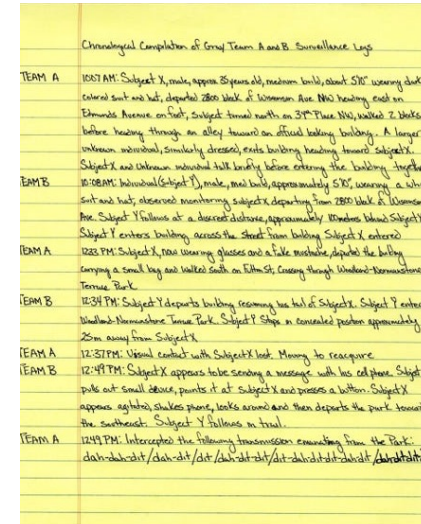 Chronological Compilation of Gray Team A and B Surveillance Logs
TEAM A 1007 AM: Subject X, male, approx 35 years old, medium build, about 5'10" wearing dark
colored suit and hat, departed 2800 block of Wisconsin Ave NW heading east on
Edmunds Avenue on foot, subject turned north on 39th Place NW, walked 2 blocks
before heading through an alley toward an official looking building. A larger
unknown individual, similarly dressed, exits building heading toward subject X.
Subject X and unknown individual talk briefly before entering the building together
TEAM B 10:08 AM: Individual (Subject Y), male, med build, approximately 5'10", wearing a
suit and hat, observed monitoring subject X departing from 2800 block of Wisconsin
Ave. Subject Y follows at a discreet distance, approximately 100 meters behind Subject
Subject Y enters building across the street from building Subject X entered
TEAM A 1233 PM: Subject X, now wearing glasses and a fake mustache, departed the building
carrying a small bag and walked south on Fulton St, crossing through Woodland-Normanstone
Terrace Park.
TEAM B 12:34 PM: Subject Y departs building resuming his tail of Subject X. Subject Y enters
Woodland-Normanstone Terrace Park. Subject Y stops in concealed position approximately
25m away from Subject X
TEAM A 12:37 PM: Visual contact with Subject X lost. Moving to reacquire
TEAM B 12:49 PM: Subject X appears to be sending a message with his cell phone. Subject
pulls out small device, points it at Subject X and presses a button. Subject X
appears agitated, shakes phone, looks around and then departs the park toward
the southeast. Subject Y follows in trail.
TEAM A 1249 PM: Intercepted the following transmission emanating from the Park:
dah-dah-dit/dah-dit/dit/dah-dit-dit/dit-dah-dit-dit-dah-dit/dah-dit-dit